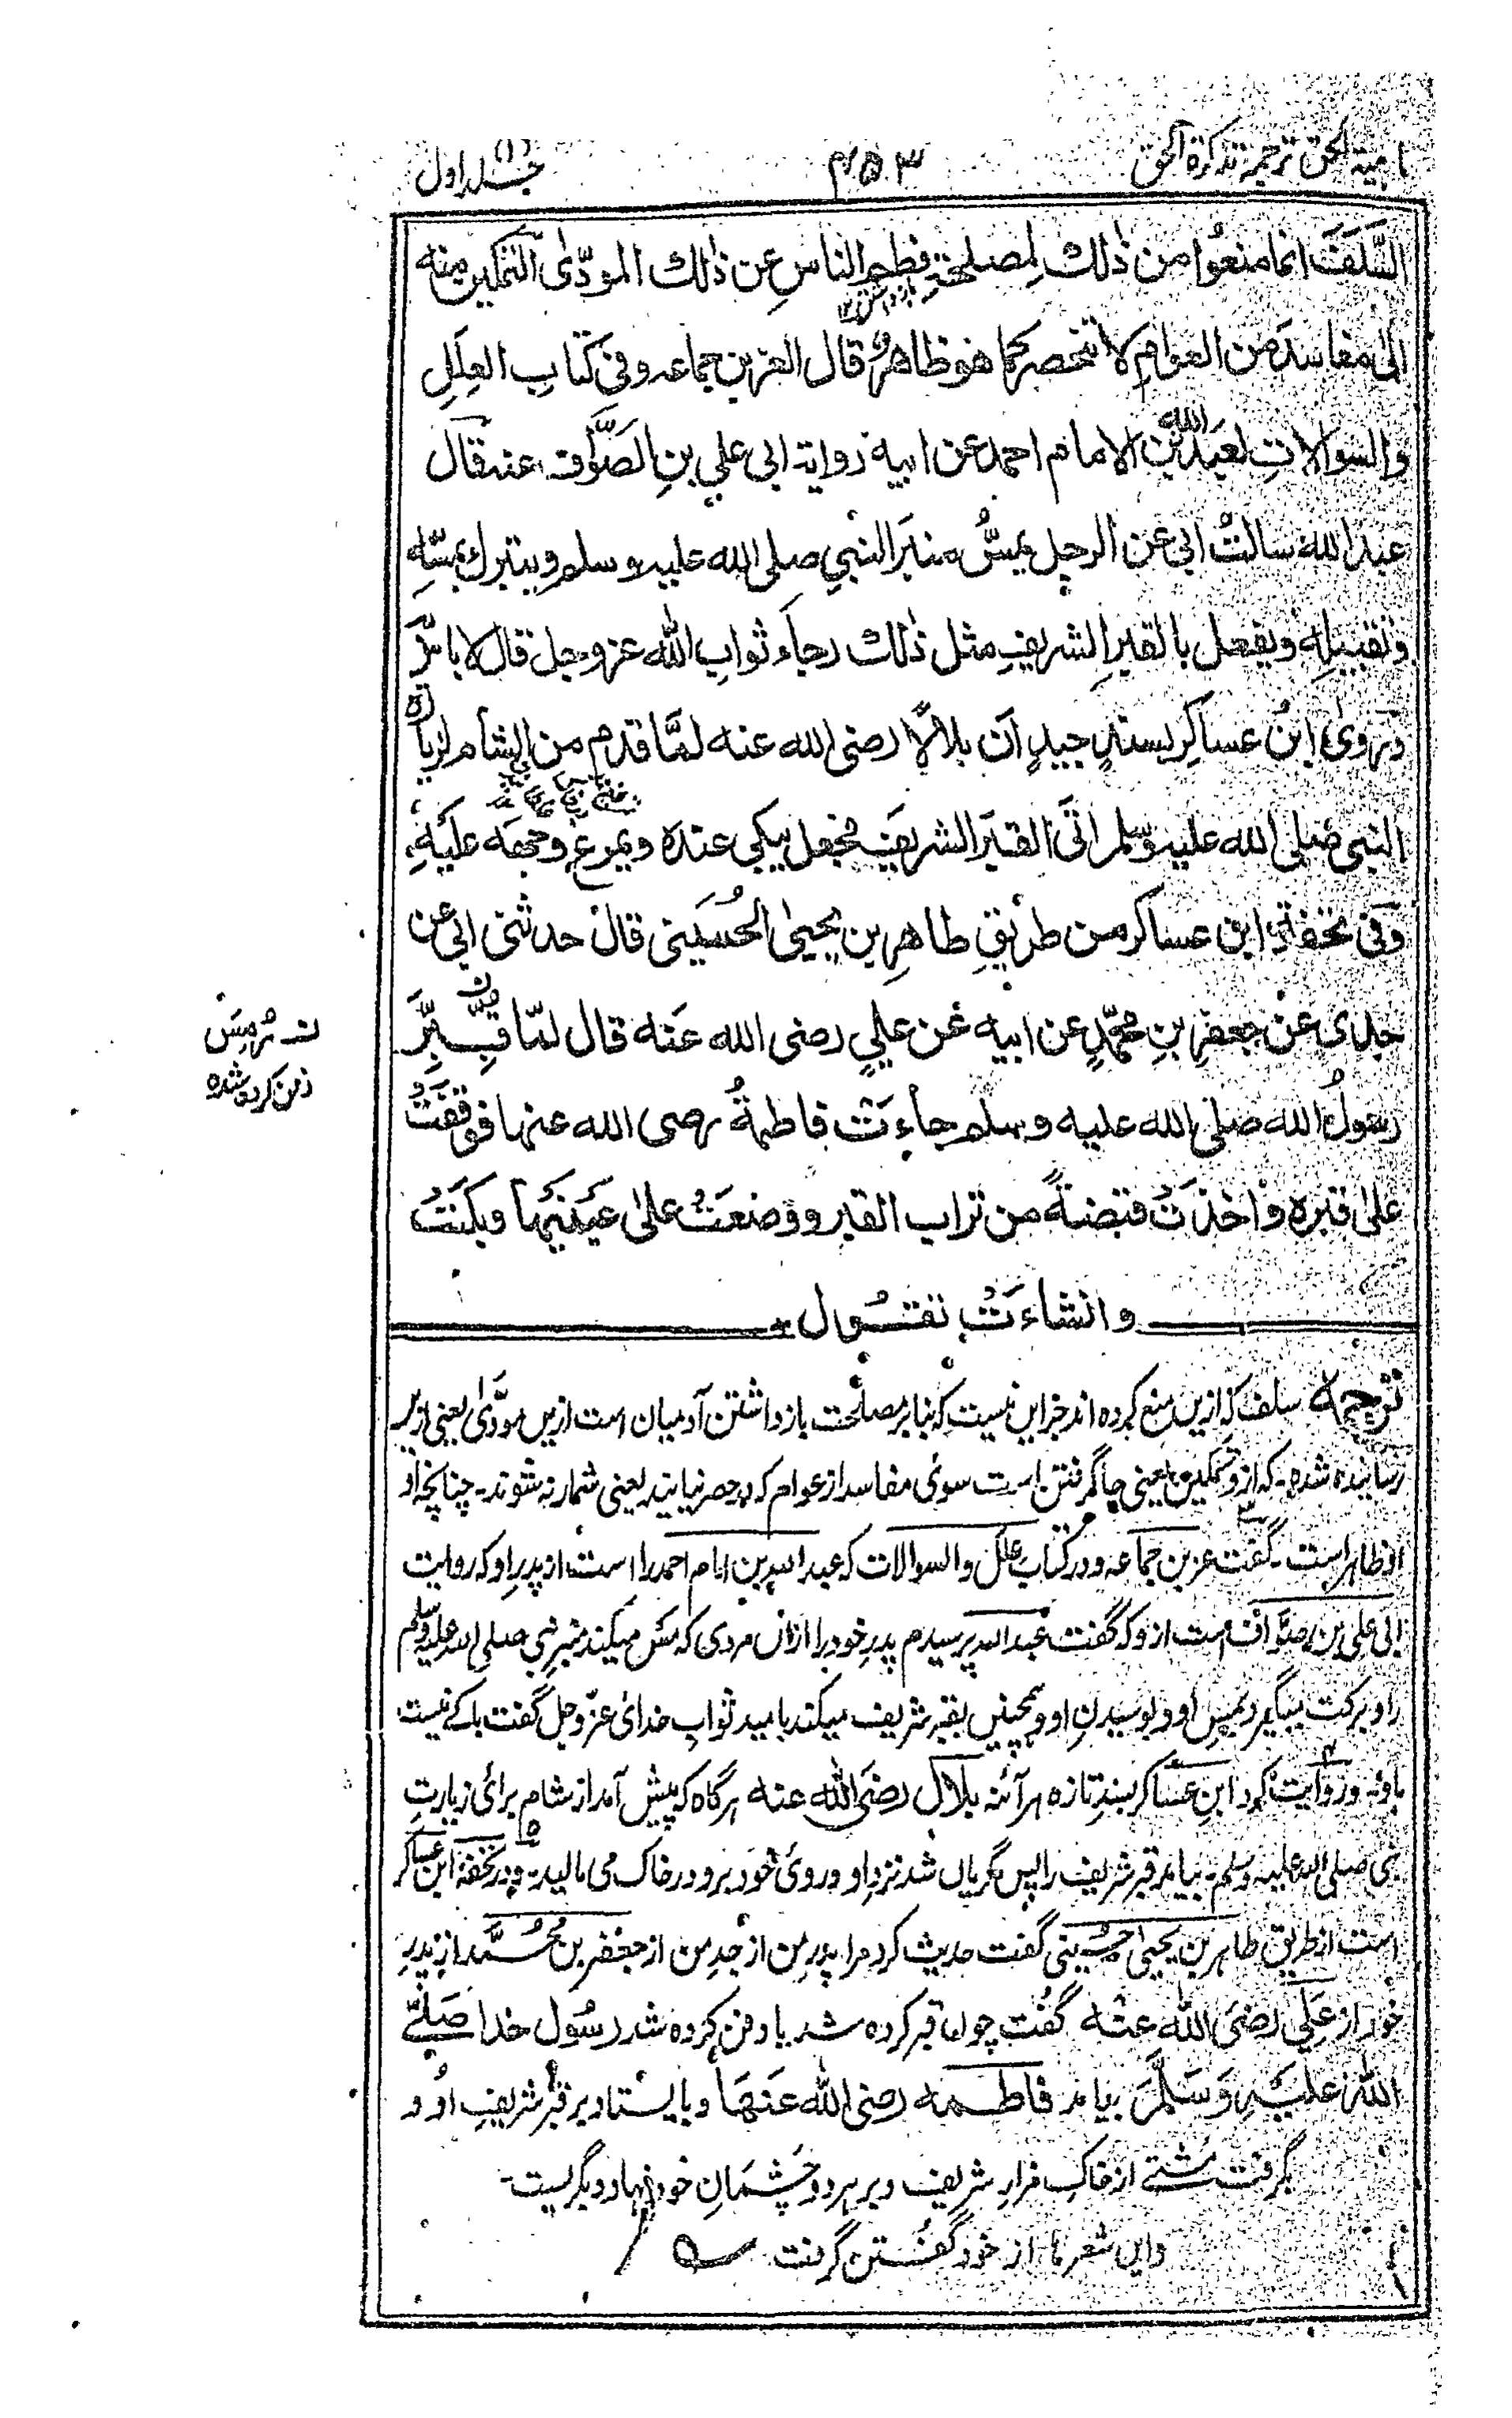 ترجمة تذكرة الحق
۴۵۳
جلد اول (۱)
السَّلَفَ انما منعُوا من ذٰلك لِمصلحةِ فطم الناسِ عن ذلك المودّى التمكين منه
الى مفاسدَ من العوامِ لا تنحصر كما هو ظاهرٌ قال العز بن جماعه وفى كتابِ العِلَلِ
والسوالاتِ لعبد الله بن الامام احمد عن ابيه رواية ابى علي بنِ الصَوَّاف عنه قال
عبد الله سالتُ ابى عن الرجل يمسُّ منبرَ النبي صلى الله عليه وسلم ويتبرك بمسّهِ
وتقبيلِه ويفعل بالقبرِ الشريفِ مثل ذٰلك رجاءَ ثوابِ الله عز وجل قال لا باسَ
وروىٰ ابنُ عساكر بسندٍ جيدٍ ان بلالًا رضى الله عنه لمَّا قدم من الشام لزيارة
النبى صلى الله عليه وسلم اتى القبرَ الشريفَ فجعل يبكى عنده ويمرغ وجهَه عليهِ
وفى تحفة ابن عساكر من طريقِ طاهرِ بن يحيىٰ الحُسَينى قال حدثنى ابى عن
جدى عن جعفرِ بنِ محمّدٍ عن ابيه عن عليٍ رضى الله عنه قال لمّا قُبِرَ
رسولُ الله صلى الله عليه وسلم جاءَت فاطمةُ رضى الله عنها فوقفَتْ
علىٰ قبره واخذَتْ قبضةً من تراب القبر ووضعَتْ علىٰ عَينَيها وبكَتْ
وانشاءَتْ تقُول
رُمِسَ
دفن کرده شده
ترجمه سلف که ازین منع کرده اند جز این نیست که بنابر مصلحت بازداشتن آدمیان است ازین مودّٰی یعنی ازیں
رسانیده شده۔ که ازو تمکین یعنی جا گرفتن است سوئ مفاسد از عوام که در حصر نیایند یعنی شمار نه شوند۔ چنانچه او
ظاهر است۔ گفت عز بن جماعه و در کتابِ علل والسوالات که عبد الله بن امام احمد را است از پدرِ او که روایت
ابی علی بن صوّاف است ازو که گفت عبد الله پرسیدم پدرِ خود را از آن مردی که مس میکند منبرِ نبی صلی الله علیه وسلم
را و برکت میگیرد بمسِ او و بوسیدنِ او و همچنین بقبرِ شریف میکند بامید ثوابِ خدائ عزّ وجل گفت باکے نیست
باو و روایت کرد ابنِ عساکر بسندِ تازه هر آئنه بلال رضی الله عنه هرگاه که پیش آمد از شام برائ زیارتِ
نبی صلی الله علیه وسلم۔ بیامد قبر شریف را پس گریاں شد نزدِ او و روئ خود برو در خاک می مالید۔ و در تحفۂ ابن عساکر
است از طریقِ طاهر بن یحییٰ حسینی گفت حدیث کرد مرا پدرِ من از جدِ من از جعفر بن محمّد از پدرِ
خود از عَلی رضی الله عنه گفت چون قبر کرده شد یا دفن کرده شد رسُولِ خدا صَلَّی
الله علیهِ وَسَلَّمَ بیامد فاطمه رضی الله عَنهَا و بایستاد بر قبرِ شریفِ او و
بگرفت مُشتے از خاکِ مزارِ شریف و بر هر دو چشمانِ خود نهاد و بگریست۔
و این شعرها از خود گفتن گرفت